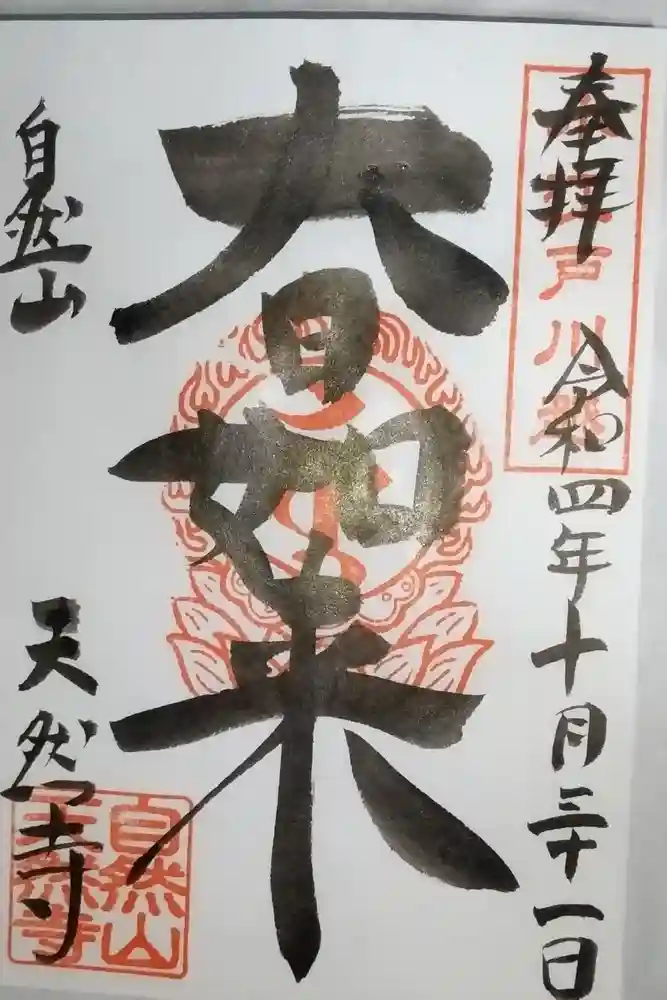 奉拝
令和四年十月三十一日
大日如来
自然山
天然寺
自然山
天然寺